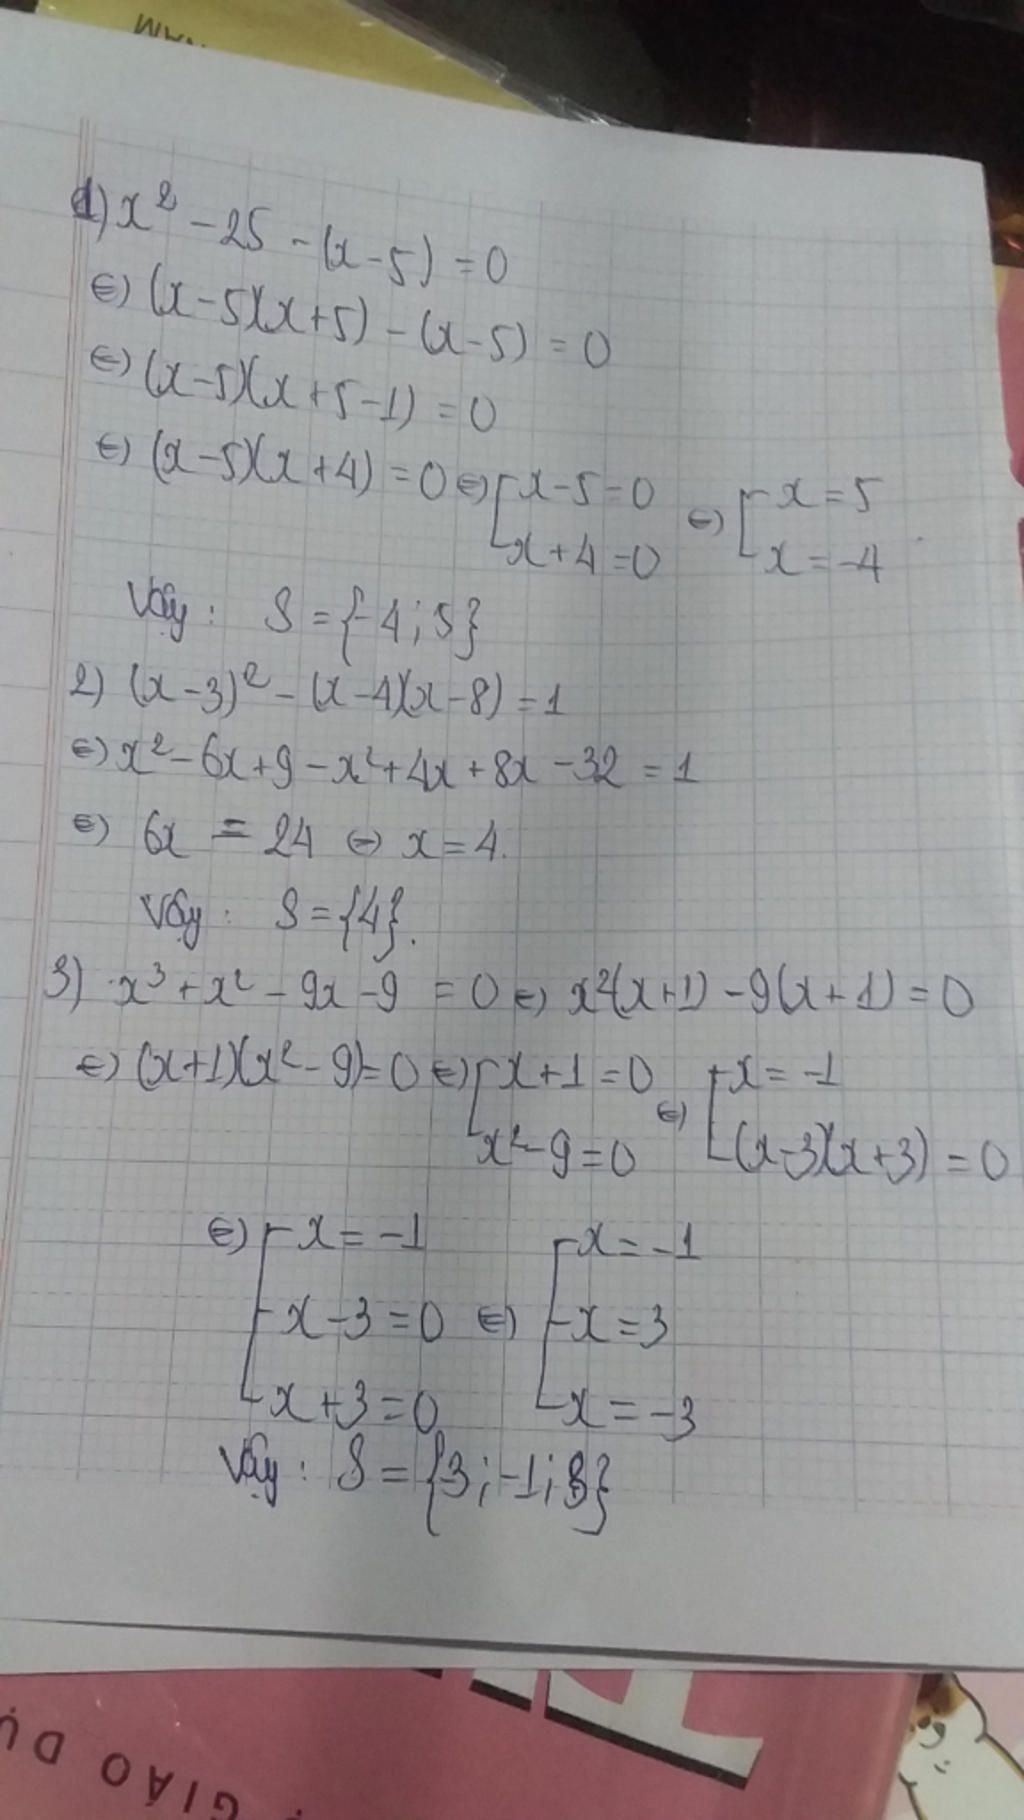 1) x² - 25 - (x - 5) = 0
⇔ (x - 5)(x + 5) - (x - 5) = 0
⇔ (x - 5)(x + 5 - 1) = 0
⇔ (x - 5)(x + 4) = 0 ⇔ [ x - 5 = 0 ⇔ [ x = 5
x + 4 = 0 x = -4
Vậy : S = {-4 ; 5}
2) (x - 3)² - (x - 4)(x - 8) = 1
⇔ x² - 6x + 9 - x² + 4x + 8x - 32 = 1
⇔ 6x = 24 ⇔ x = 4.
Vậy : S = {4}.
3) x³ + x² - 9x - 9 = 0 ⇔ x²(x + 1) - 9(x + 1) = 0
⇔ (x + 1)(x² - 9) = 0 ⇔ [ x + 1 = 0 ⇔ [ x = -1
x² - 9 = 0 (x - 3)(x + 3) = 0
⇔ [ x = -1 [ x = -1
x - 3 = 0 ⇔ x = 3
x + 3 = 0 x = -3
Vậy : S = {-3 ; -1 ; 3}
GIÁO DỤ